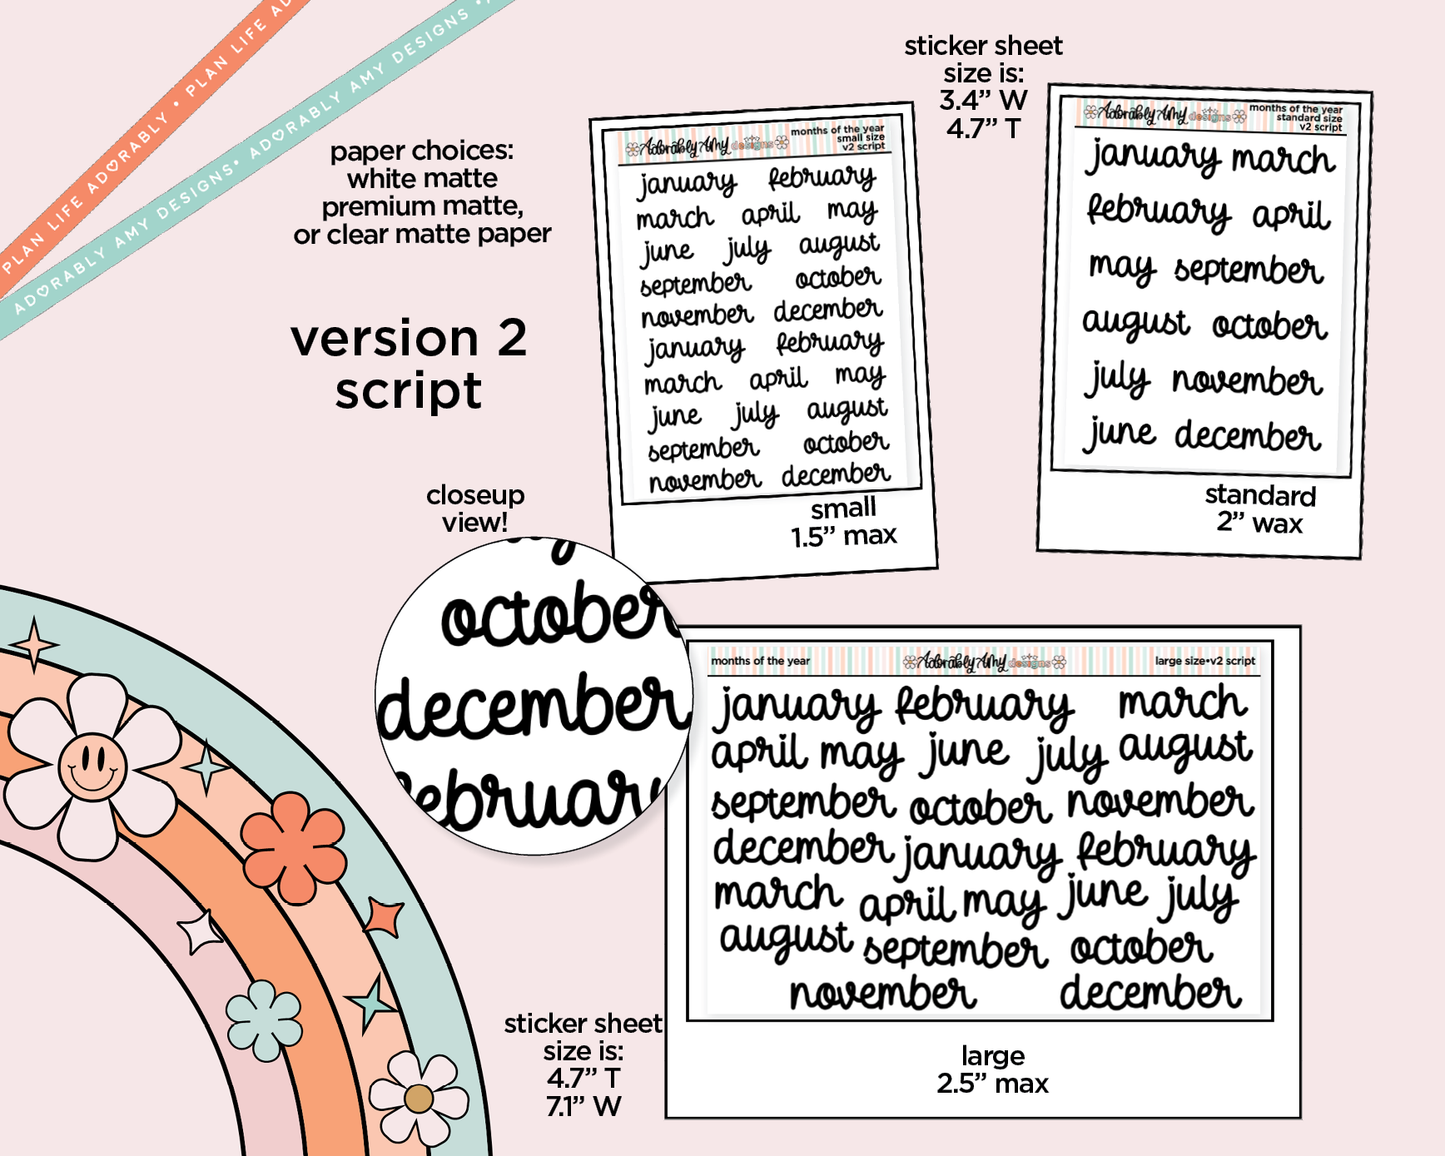 PLAN LIFE ADORABLY • PLAN LIFE AD
ADORABLY AMY DESIGNS• ADORABLY AMY DESIGNS •
paper choices:
white matte
premium matte,
or clear matte paper
version 2
script
closeup
view!
october
december
february
sticker sheet
size is:
3.4” W
4.7” T
Adorably Amy designs
months of the year
small size
v2 script
january february
march april may
june july august
september october
november december
january february
march april may
june july august
september october
november december
small
1.5” max
Adorably Amy designs
months of the year
standard size
v2 script
january march
february april
may september
august october
july november
june december
standard
2” wax
months of the year Adorably Amy designs large size•v2 script
january february march
april may june july august
september october november
december january february
march april may june july
august september october
november december
large
2.5” max
sticker sheet
size is:
4.7” T
7.1” W